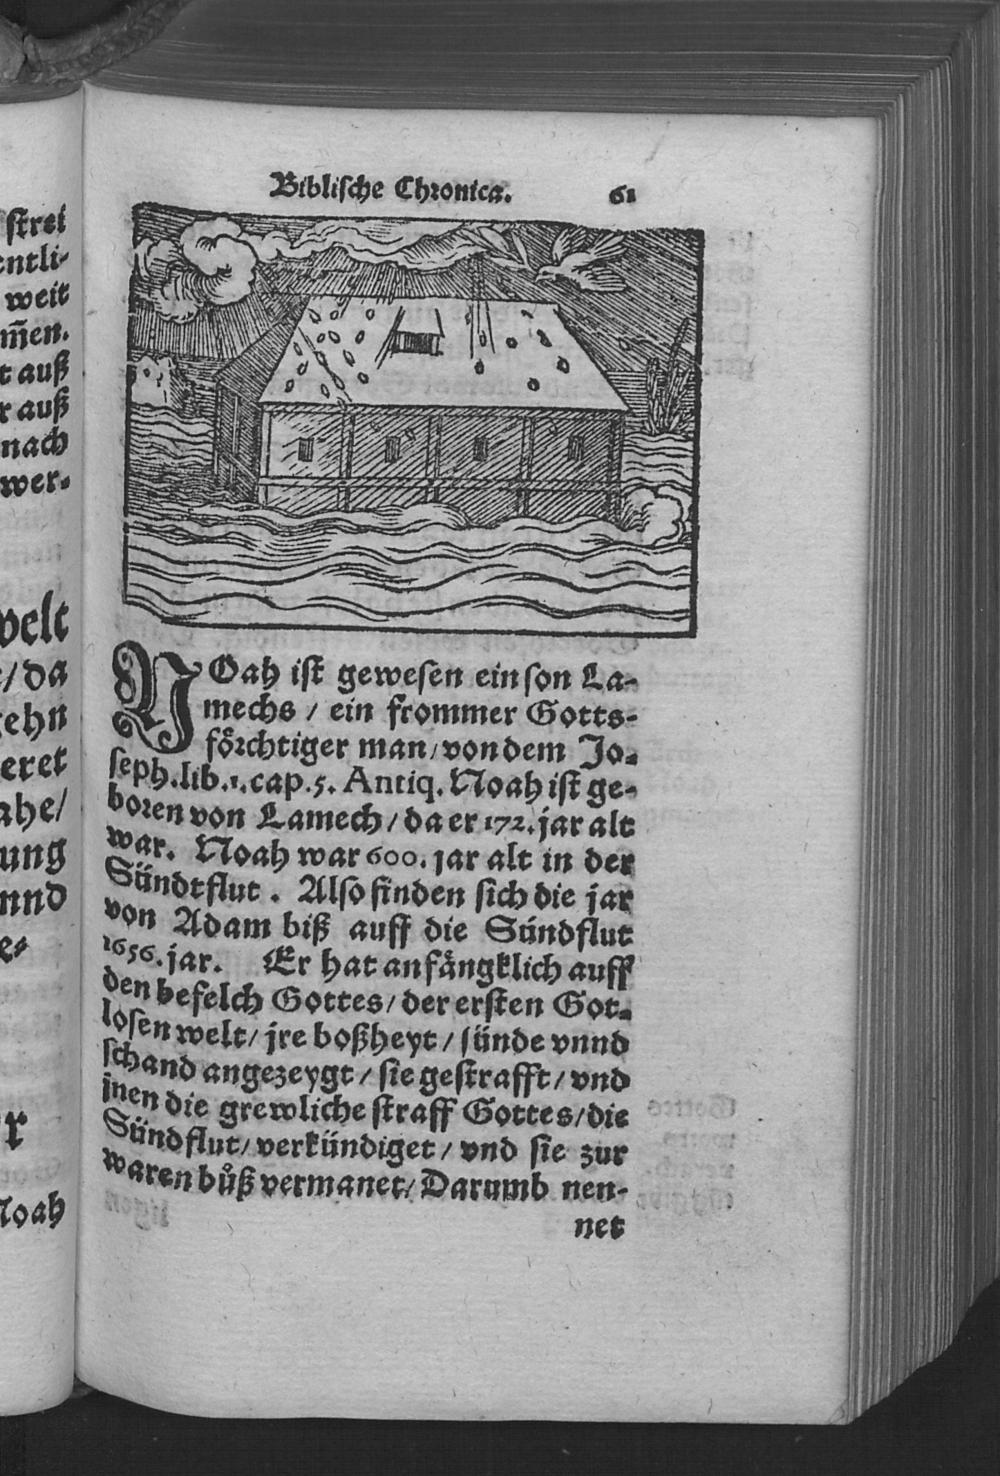 strei
entli-
weit
m̄en.
t auß
r auß
nach
wer-
welt
/ da
zehn
eret
ahe/
ung
nnd
e-
r
Noah
Biblische Chronica. 61
NOah ist gewesen ein son La-
mechs / ein frommer Gotts-
förchtiger man/ von dem Jo-
seph.lib.1.cap.5. Antiq. Noah ist ge-
boren von Lamech / da er 172. jar alt
war. Noah war 600. jar alt in der
Sündtflut. Also finden sich die jar
von Adam biß auff die Sündflut
1656. jar. Er hat anfängklich auff
den befelch Gottes/ der ersten Got-
losen welt/ jre boßheyt / sünde vnnd
schand angezeygt / sie gestrafft/ vnd
jnen die grewliche straff Gottes/ die
Sündflut/ verkündiget / vnd sie zur
waren bůß vermanet/ Darumb nen-
net